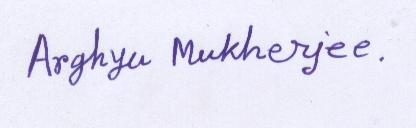 Arghyu Mukherjee.